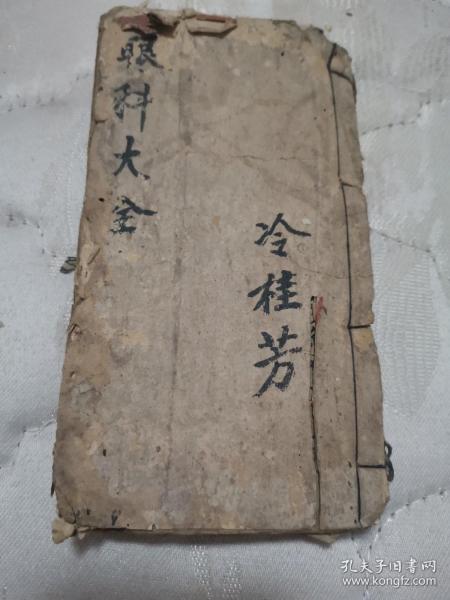 眼科大全
冷桂芳
孔夫子旧书网
www.kongfz.com